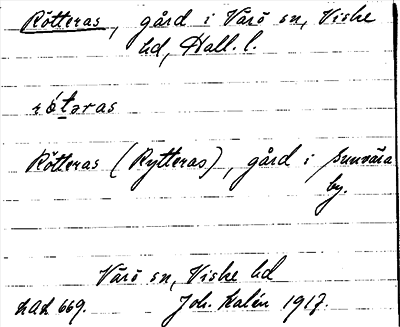 Rötteras, gård i Värö sn, Viske
hd, Hall. l.
rö́təras
Rötteras (Rytteras), gård i Sunvära
by.
Värö sn, Viske hd
LAL 669. Joh. Kalén 1917.